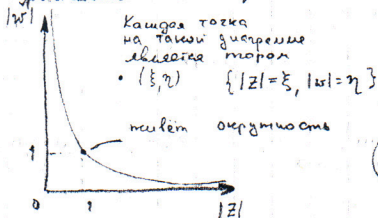 |w|
Каждая точка
на такой диаграмме
является тором
• (ξ,η) {|z|=ξ, |w|=η}
живёт окружность
1
0 1 |z|